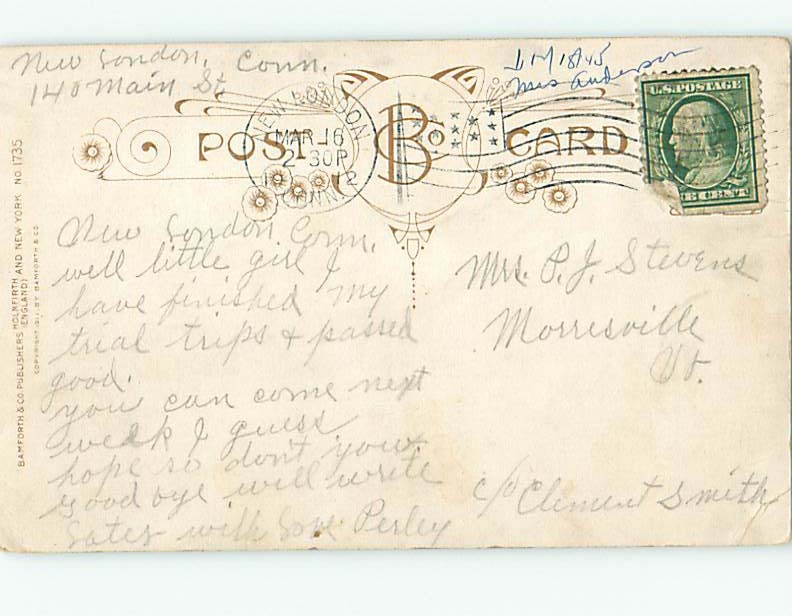 New London, Conn.
140 Main St.
Mrs Anderson
U.S. POSTAGE
NEW LONDON
MAR 16
2-30P
1912
CONN.
POST CARD
B & Co
1 CENT 1
BAMFORTH & CO. PUBLISHERS HOLMFIRTH AND NEW YORK NO. 1735
(ENGLAND)
COPYRIGHT 1911 BY BAMFORTH & CO
New London Conn.
well little girl I
have finished my
trial trips & passed
good.
you can come next
week I guess
hope so don't you.
Good bye will write
later with love Perley
Mrs. P. J. Stevens
Morrisville
Vt.
c/o Clement Smith